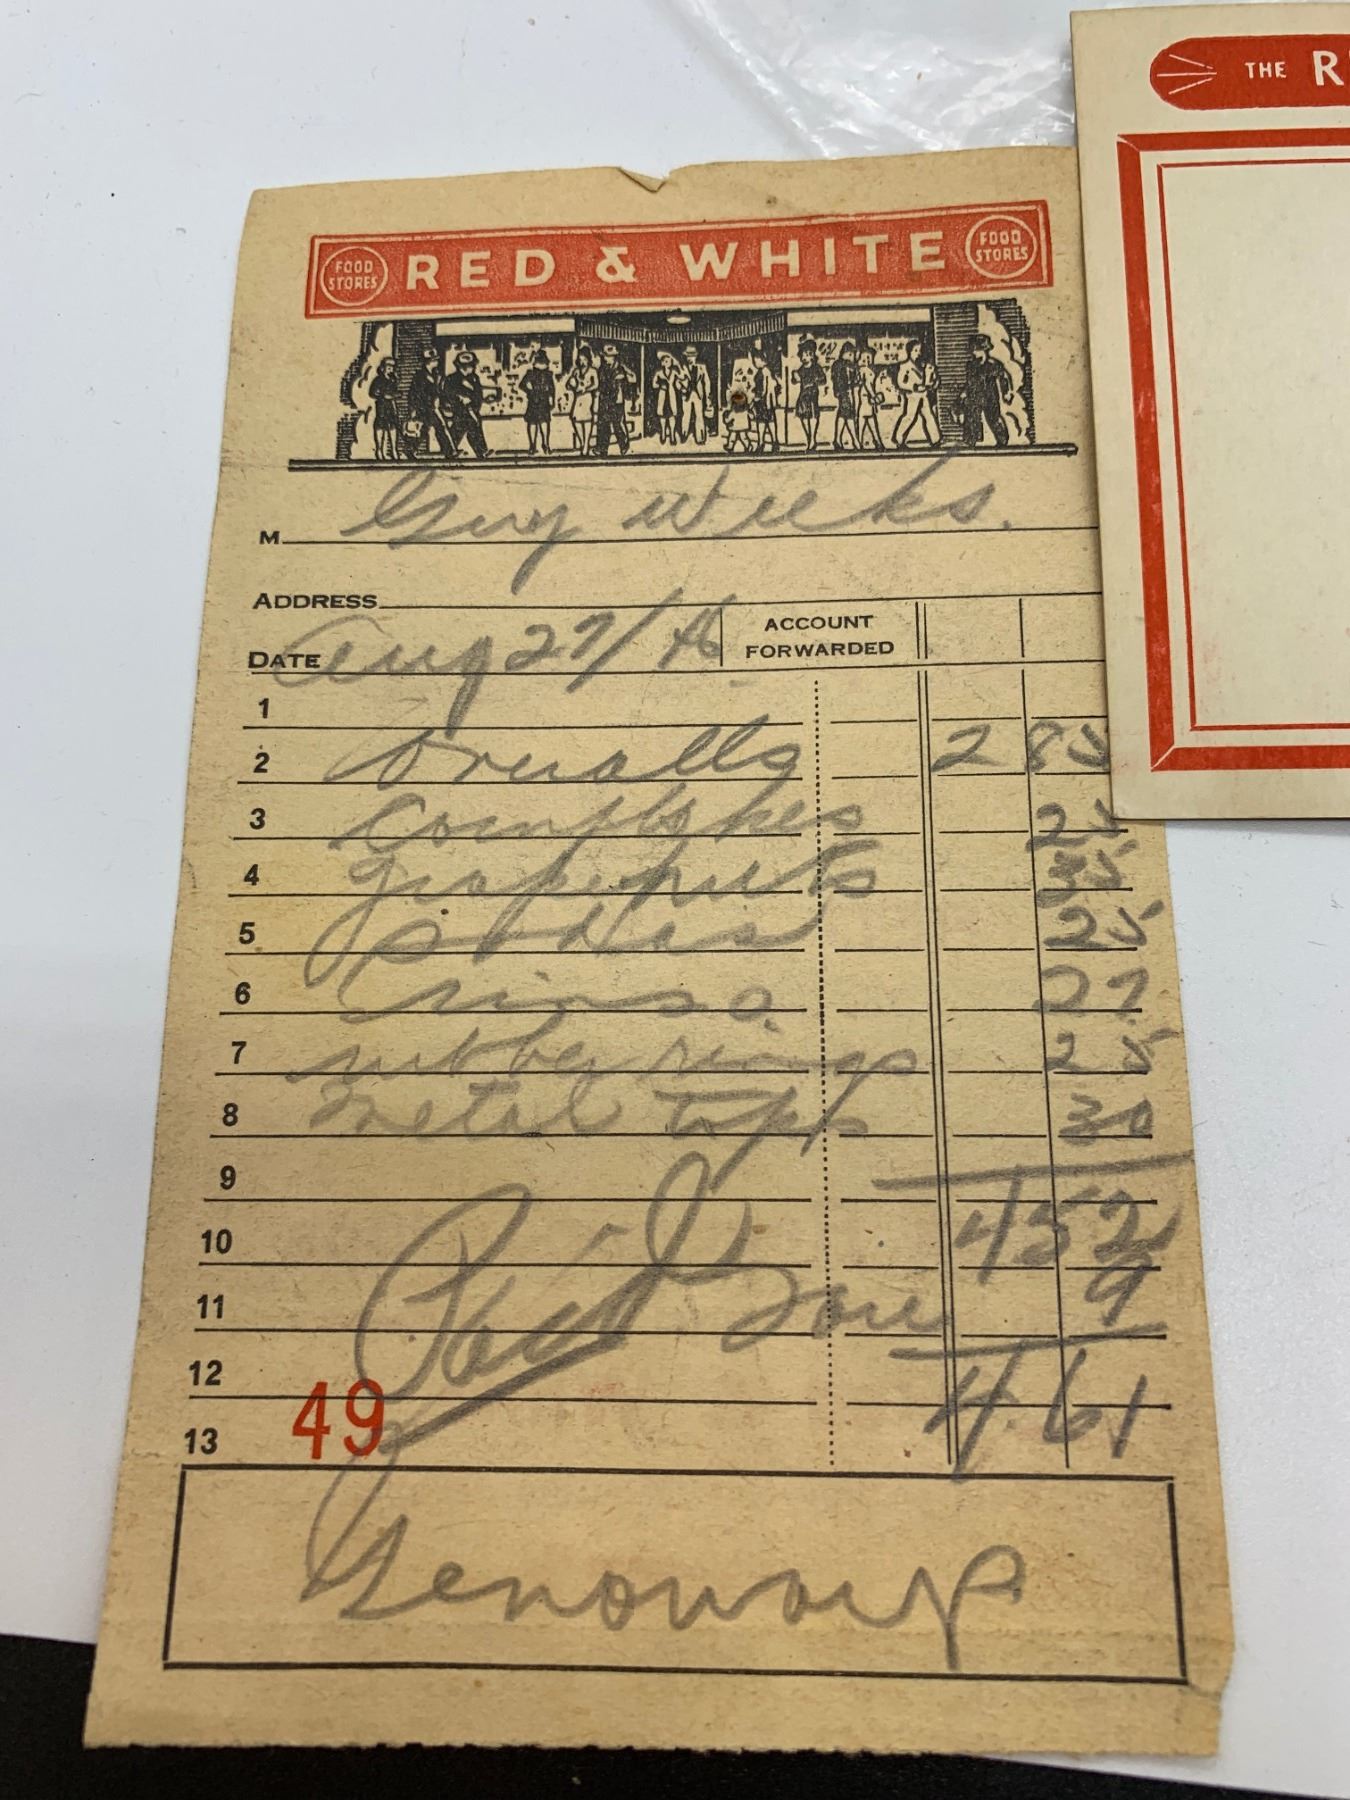 THE R
FOOD STORES RED & WHITE FOOD STORES
M Guy Weeks.
ADDRESS
DATE Aug 27/46 ACCOUNT FORWARDED
1
2 Overalls 2 85
3 Cornflakes 25
4 grapenuts 35
5 sodas 25
6 rinso 27
7 rubber rings 25
8 metal topps 30
9
10 4 52
11 Paid 9
12
13 49 4.61